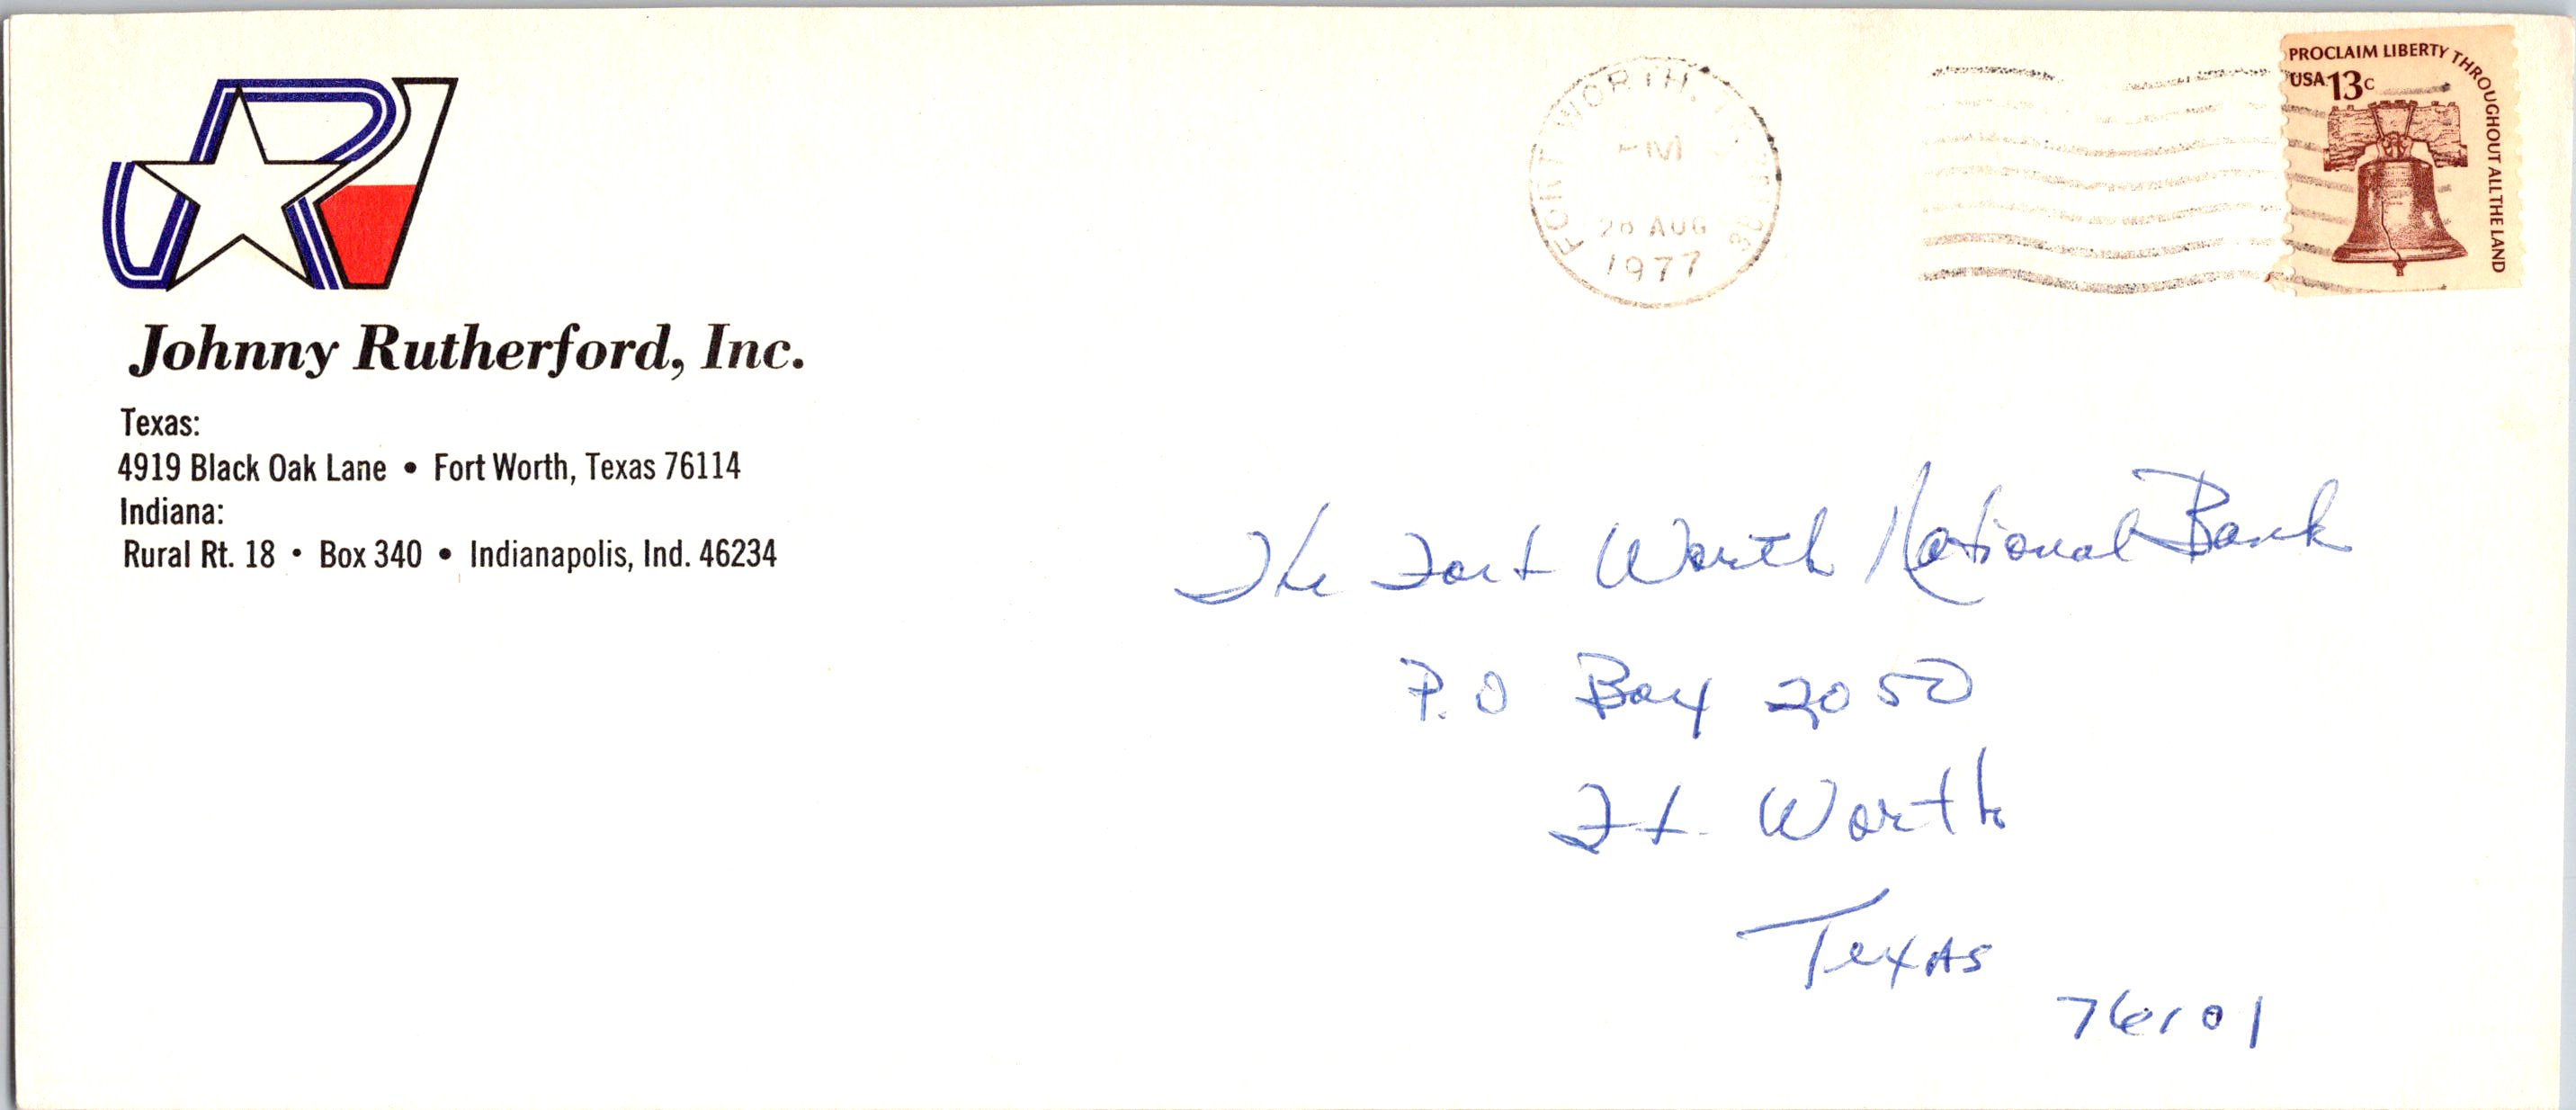 Johnny Rutherford, Inc.
Texas:
4919 Black Oak Lane • Fort Worth, Texas 76114
Indiana:
Rural Rt. 18 • Box 340 • Indianapolis, Ind. 46234
FORT WORTH,
PM
AUG
1977
PROCLAIM LIBERTY THROUGHOUT ALL THE LAND
USA 13c
The Fort Worth National Bank
P.O Box 2050
Ft. Worth
Texas
76101